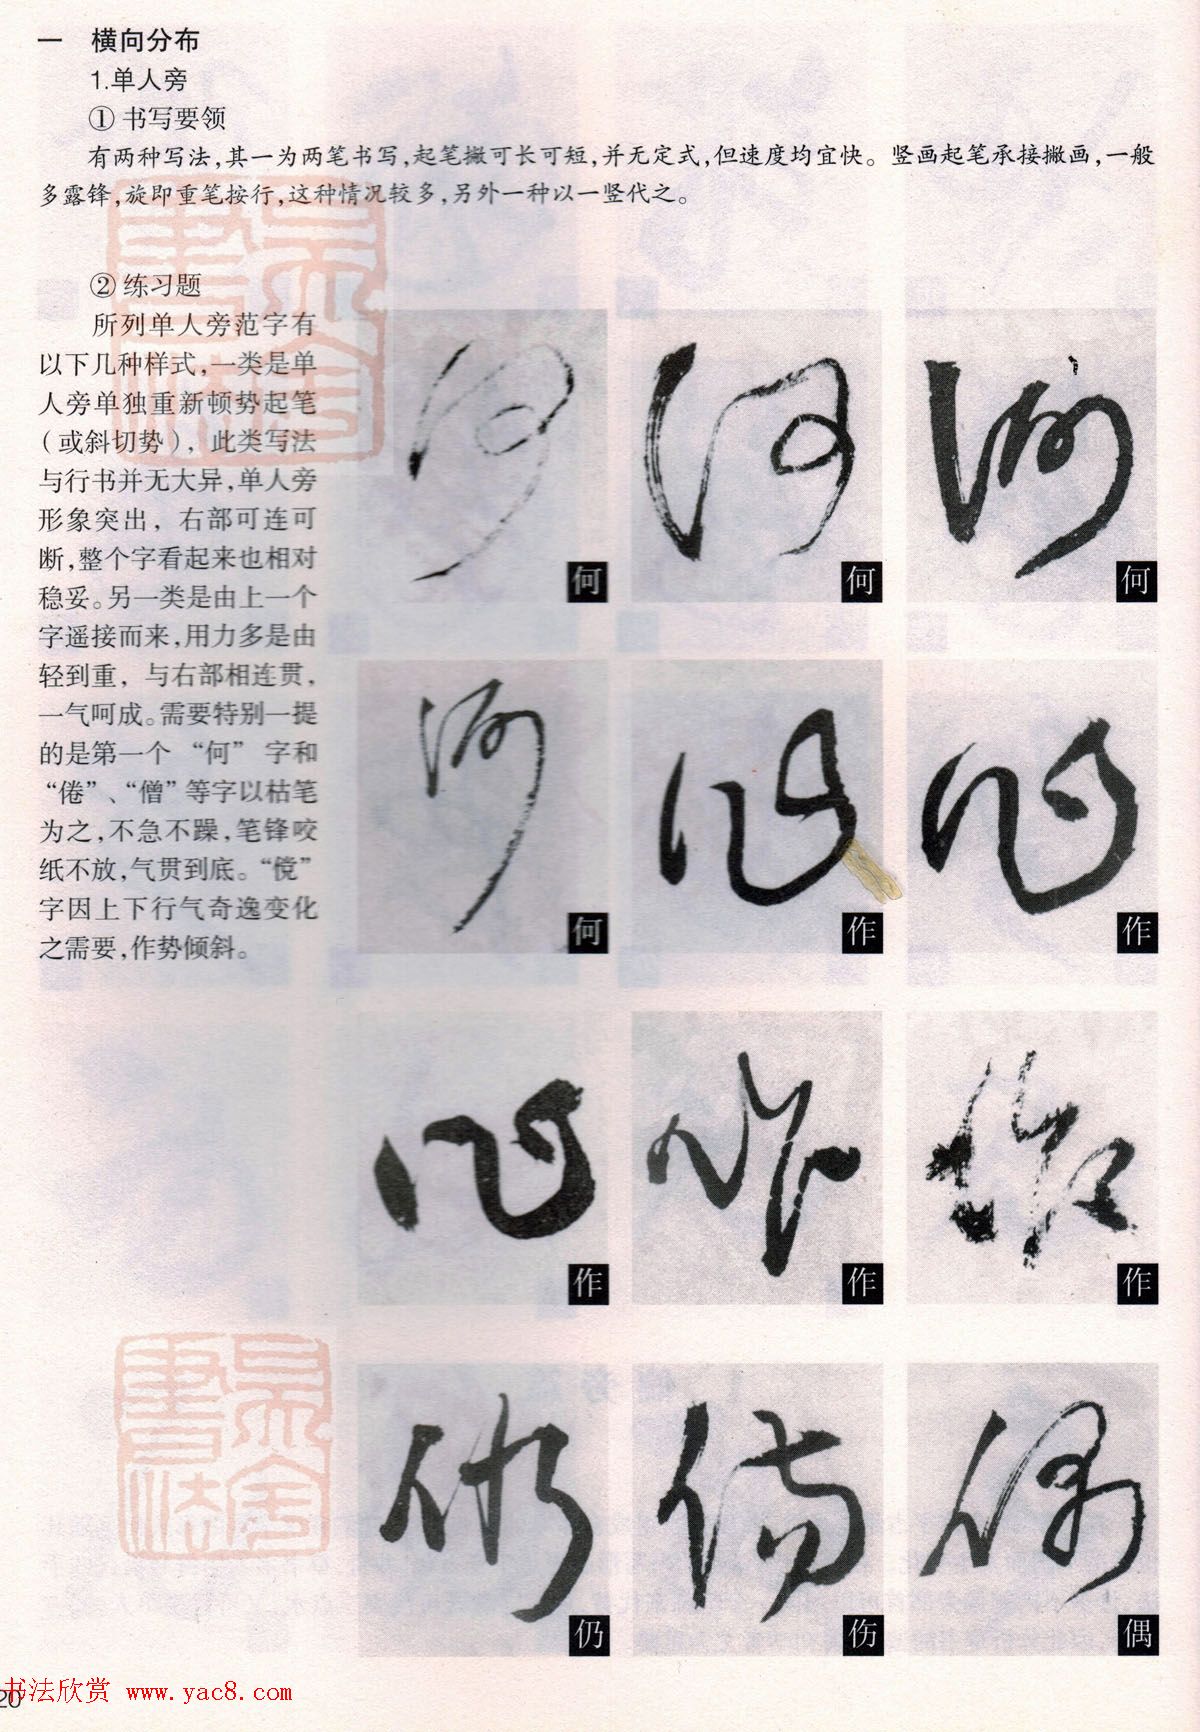 一 横向分布
1.单人旁
① 书写要领
有两种写法,其一为两笔书写,起笔撇可长可短,并无定式,但速度均宜快。竖画起笔承接撇画,一般
多露锋,旋即重笔按行,这种情况较多,另外一种以一竖代之。
② 练习题
所列单人旁范字有
以下几种样式,一类是单
人旁单独重新顿势起笔
(或斜切势),此类写法
与行书并无大异,单人旁
形象突出,右部可连可
断,整个字看起来也相对
稳妥。另一类是由上一个
字遥接而来,用力多是由
轻到重,与右部相连贯,
一气呵成。需要特别一提
的是第一个“何”字和
“倦”、“僧”等字以枯笔
为之,不急不躁,笔锋咬
纸不放,气贯到底。“傥”
字因上下行气奇逸变化
之需要,作势倾斜。
何 何 何
何 作 作
作 作 作
仍 伤 偶
20
书法欣赏 www.yac8.com